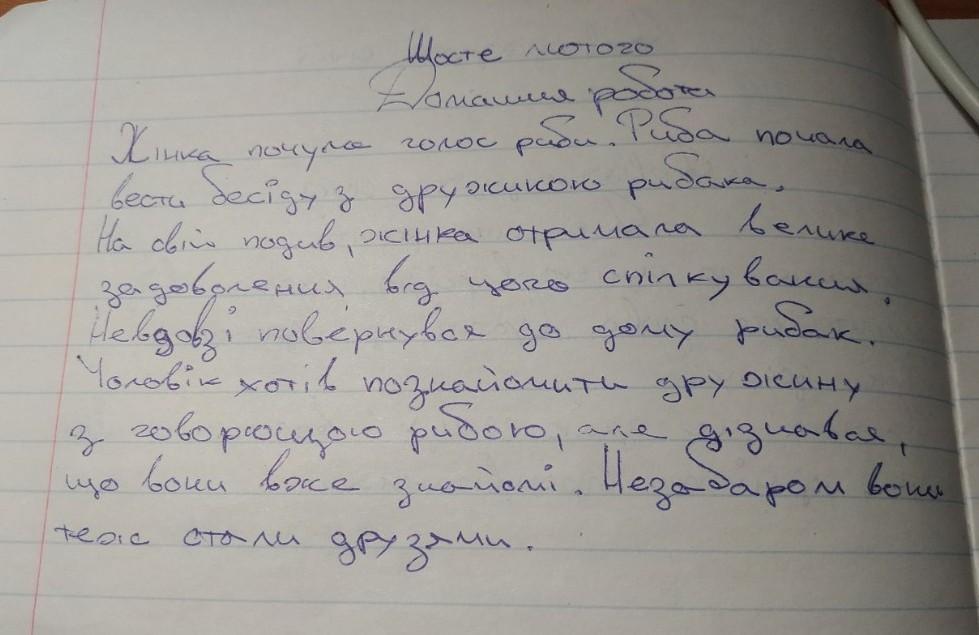 Шосте лютого
Домашня робота
Жінка почула голос риби. Риба почала
вести бесіду з дружиною рибака.
На свій подив, жінка отримала велике
задоволення від цього спілкування.
Невдовзі повернувся до дому рибак.
Чоловік хотів познайомити дружину
з говорющою рибою, але дізнався,
що вони вже знайомі. Незабаром вони
теж стали друзями.